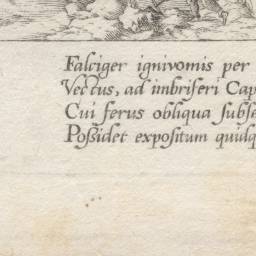 Falciger ignivomis per
Vectus, ad imbriferi Cap
Cui ferus obliqua subse
Possidet expositum quidq